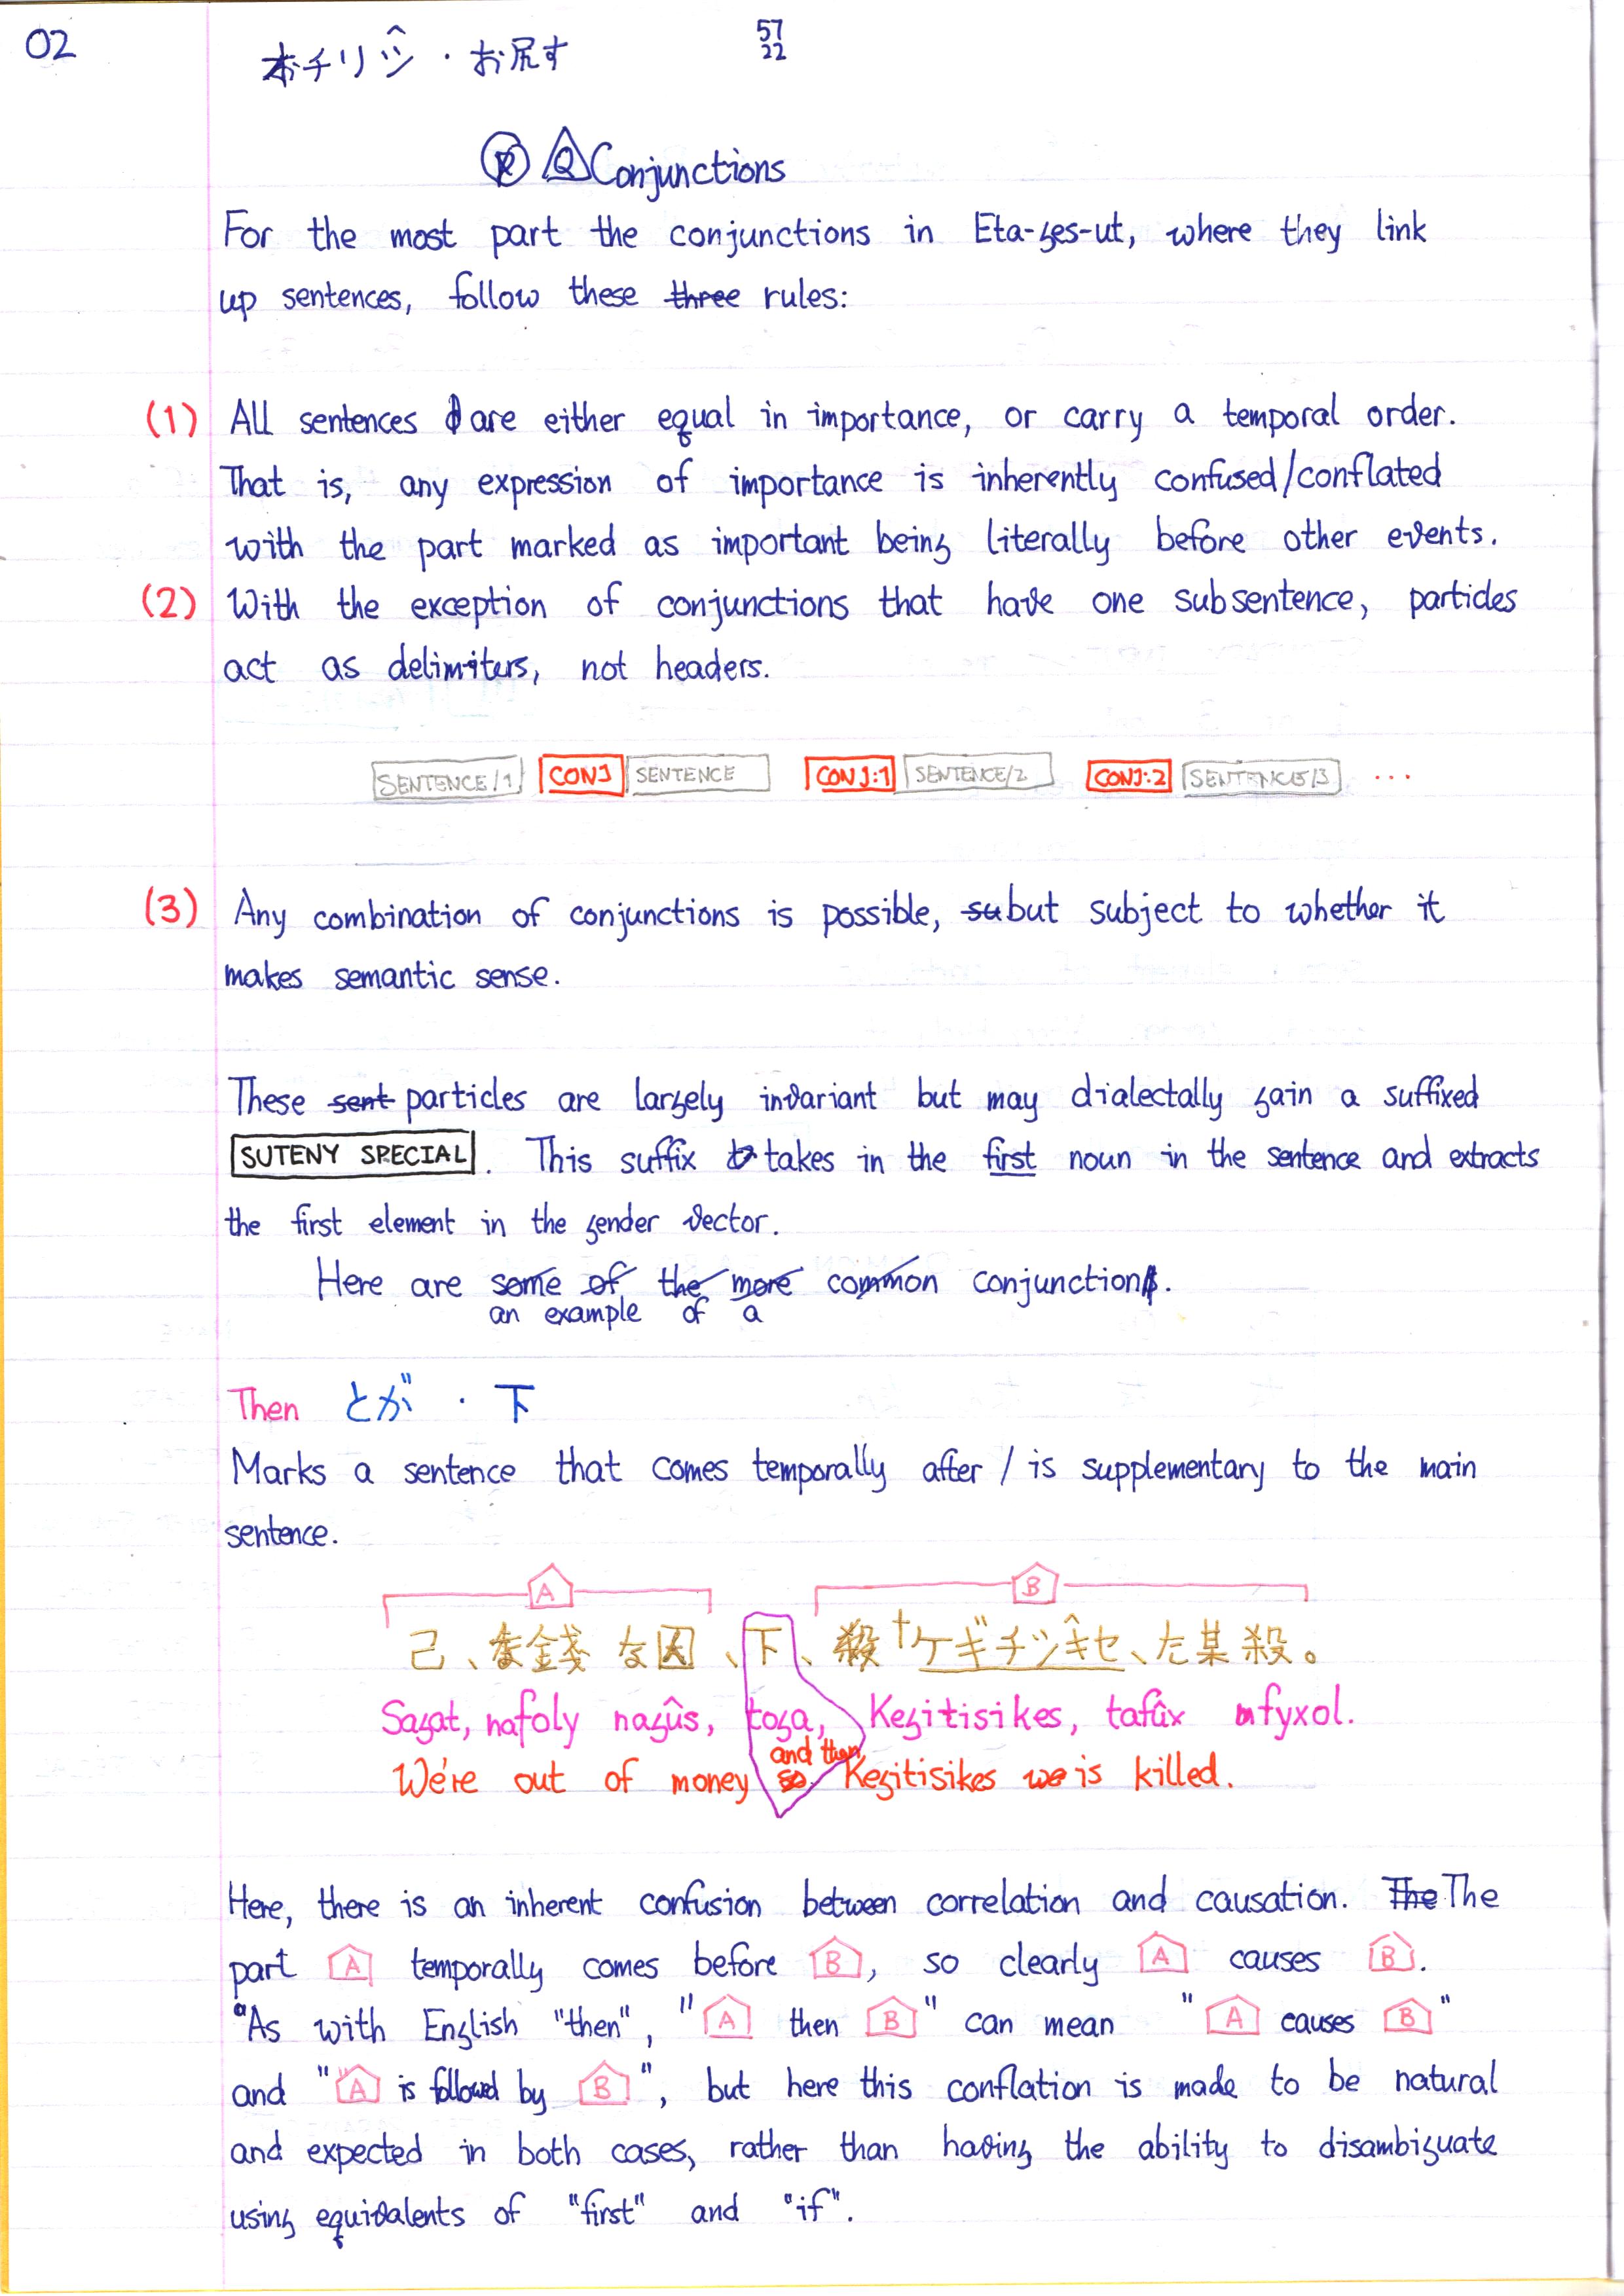 02
本チリシ̂・お尻す
57
22
R Q Conjunctions
For the most part the conjunctions in Eta-ges-ut, where they link
up sentences, follow these three rules:
(1) All sentences are either equal in importance, or carry a temporal order.
That is, any expression of importance is inherently confused/conflated
with the part marked as important being literally before other events.
(2) With the exception of conjunctions that have one subsentence, particles
act as delimiters, not headers.
SENTENCE/1 CONJ SENTENCE CONJ:1 SENTENCE/2 CONJ:2 SENTENCE/3 ...
(3) Any combination of conjunctions is possible, su but subject to whether it
makes semantic sense.
These sent particles are largely invariant but may dialectally gain a suffixed
SUTENY SPECIAL. This suffix takes in the first noun in the sentence and extracts
the first element in the gender vector.
Here are some of the more common conjunction.
an example of a
Then とが・下
Marks a sentence that comes temporally after / is supplementary to the main
sentence.
A B
己、な金錢な囚、下、殺†ケギチツ̂キセ、た某殺。
Sagat, nafoly nagûs, toga, Kegitisikes, tafûx fyxol.
and then
We're out of money so Kegitisikes we is killed.
Here, there is an inherent confusion between correlation and causation. The The
part A temporally comes before B, so clearly A causes B.
"As with English "then", "A then B" can mean "A causes B"
and "A is followed by B", but here this conflation is made to be natural
and expected in both cases, rather than having the ability to disambiguate
using equivalents of "first" and "if".